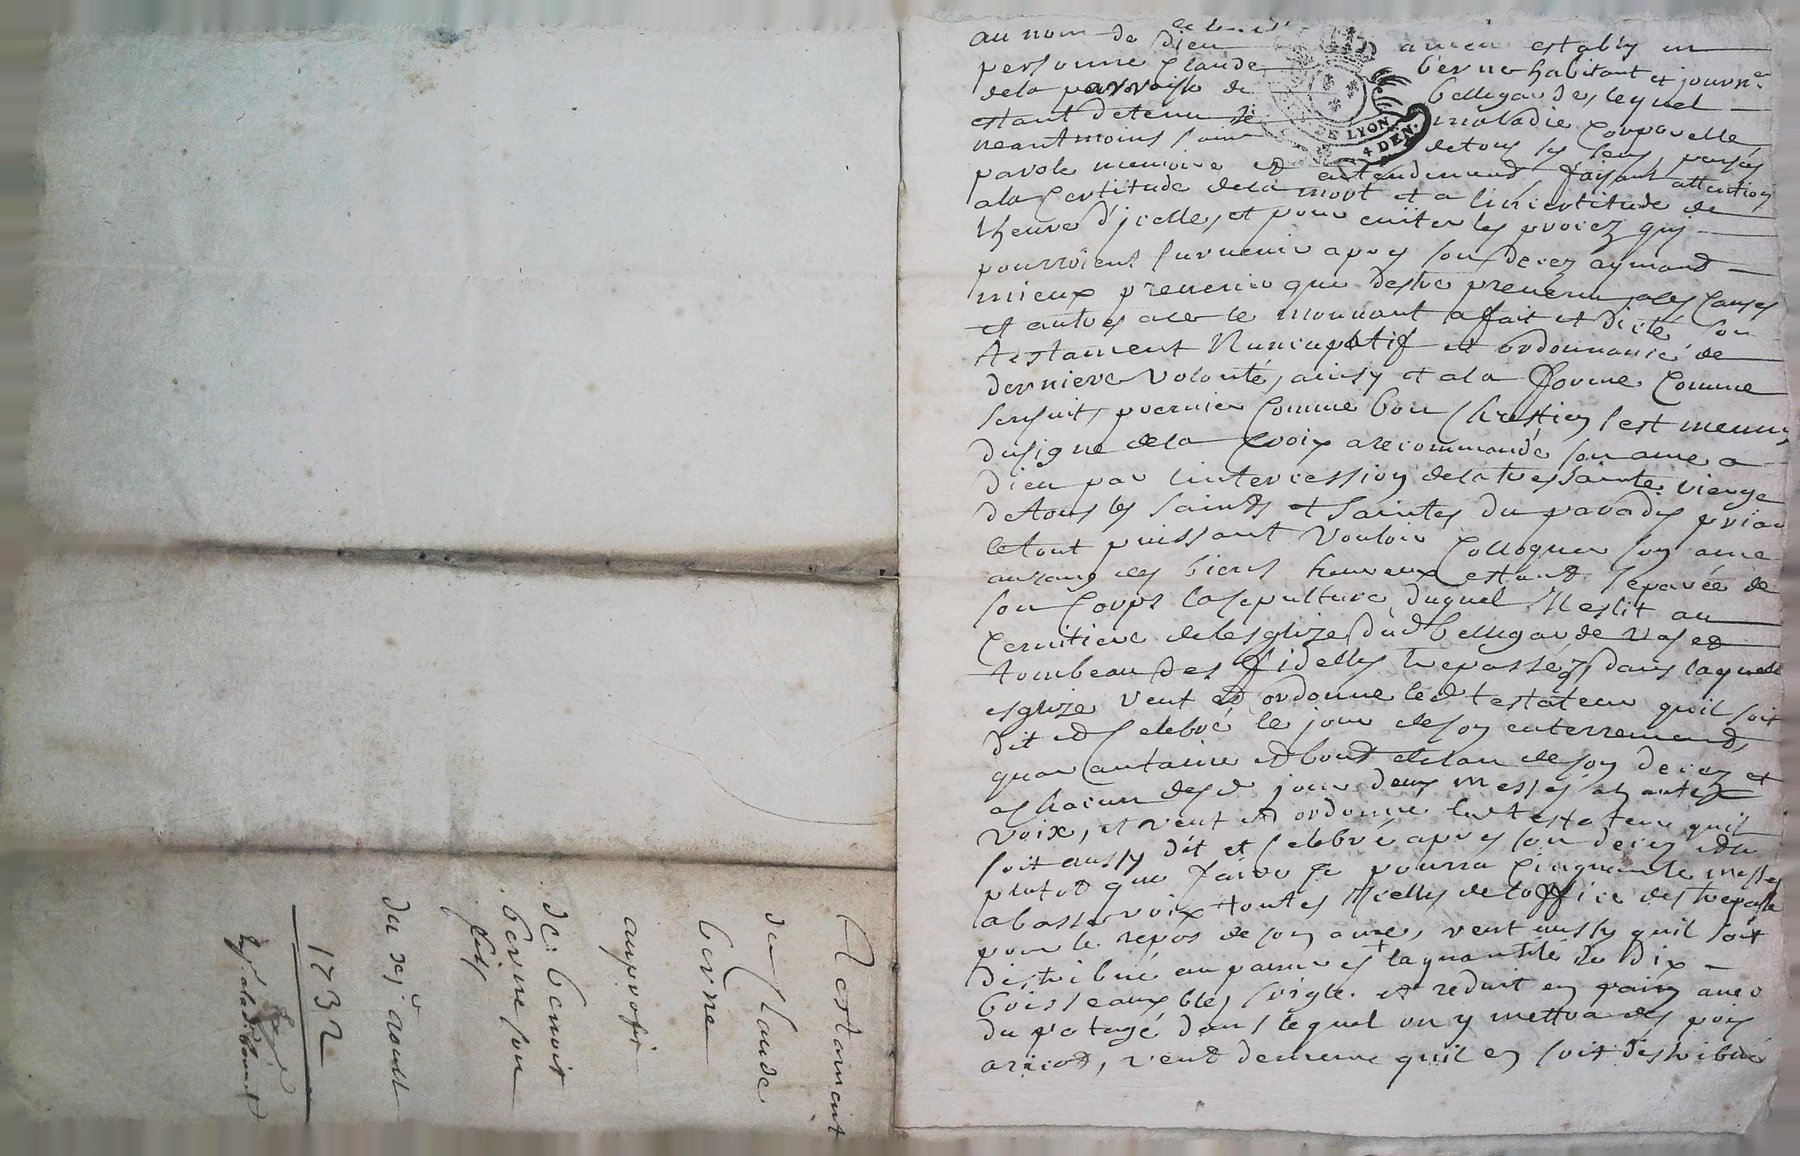 Testament
de Claude
berne
au profit
de: benoit
berne son
fils
du 26e aoust
1732
au nom de Dieu amen estably en
personne Claude berne habitant et journer
dela parroisse de bellegarde, lequel
estant detenu de maladie Corporelle
neantmoins sain de tous ses sens pensés
parole memoire et entendement faisant attention
ala Certitude dela mort et a lincertitude de
lheure d'jcelle, et pour eviter les procez quy
pourroient survenir apres son decez aymant
mieux prevenir que destre prevenu, a ces Causes
et autres a ce le mouvant a fait et dicté son
testament Nuncupatif et ordonnance de
derniere volonté, ainsy et ala forme Comme
sensuit, premier Comme bon Chrestien sest meuny
du signe dela Croix a recommandé son ame a
Dieu par lintercession dela tres sainte vierge
de tous les saints et saintes du paradis priant
le tout puissant vouloir Colloquer son ame
au rang des biens heureux estant separée de
son Corps la sepulture duquel Il eslit au
Cemitiere de lesglize dud bellegarde vas et
tombeau des fidelles trepassez, dans laquelle
esglize veut et ordonne led testateur quil soit
dit et Celebré le jour de son enterrement,
quarantaine et bout delan de son decez et
a chacun desd jour deux Messes a hautes
voix, et veut et ordonne led testateur quil
soit aussy dit et Celebré apres son decez et le
plutot que faire se pourra Cinquante messes
a basse voix toutes Jcelles de loffice des trepassés
pour le repos de son ame, veut aussy quil soit
distribué au pauvres la quantité de Dix
boisseaux bled seigle et reduit en pain avec
du potage dans lequel on y mettra des pois
aricot, veut de meme quil en soit distribué
DE LYON
4 DEN.